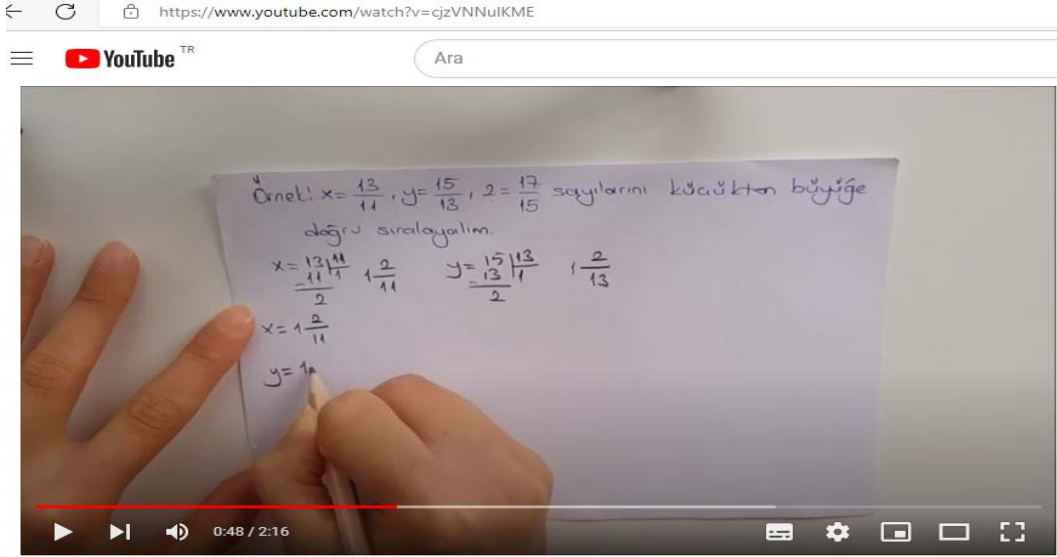 https://www.youtube.com/watch?v=cjzVNNulKME
YouTube TR
Ara
Örnek: x= 13/11, y= 15/13, 2= 17/15 sayılarını küçükten büyüğe
doğru sıralayalım.
x= 13 | 11 1 2/11 y= 15 | 13 1 2/13
-11 | 1 -13 | 1
2 2
x= 1 2/11
y= 1
0:48 / 2:16